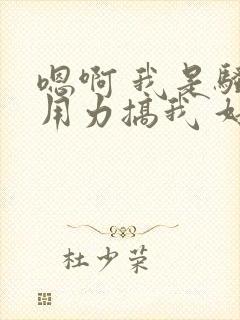 嗯啊 我是骚
用力搞我 好
杜少荣